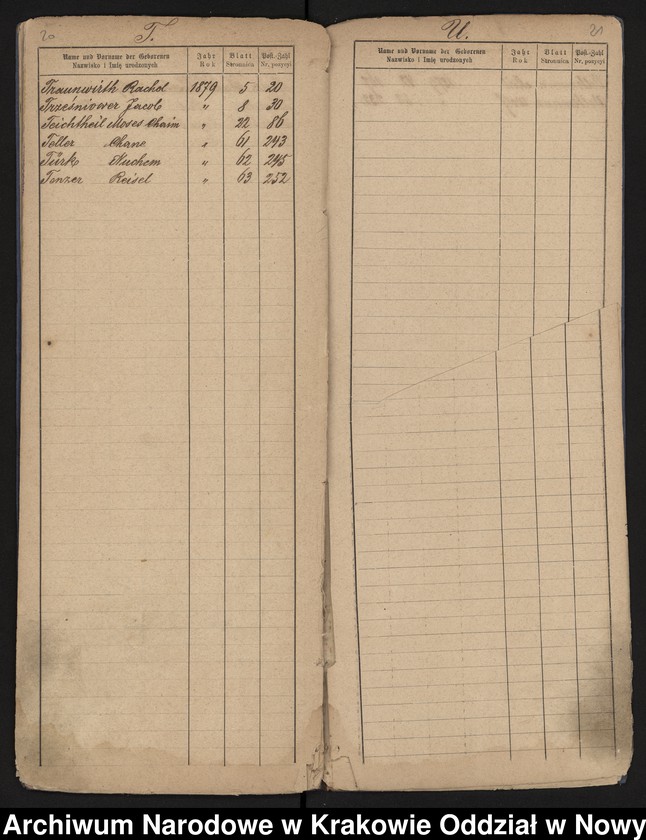 20 T.
Name und Vorname der Geborenen Jahr Blatt Post-Zahl
Nazwisko i Imię urodzonych Rok Stronnica Nr. pozycyi
Traunwirth Rachel 1879 5 20
Trześniower Jacob " 8 30
Teichtheil Moses Chaim " 22 86
Teller Chane " 61 243
Türk Nuchem " 62 245
Tenzer Reisel " 63 252
U. 21
Name und Vorname der Geborenen Jahr Blatt Post-Zahl
Nazwisko i Imię urodzonych Rok Stronnica Nr. pozycyi
Archiwum Narodowe w Krakowie Oddział w Nowy